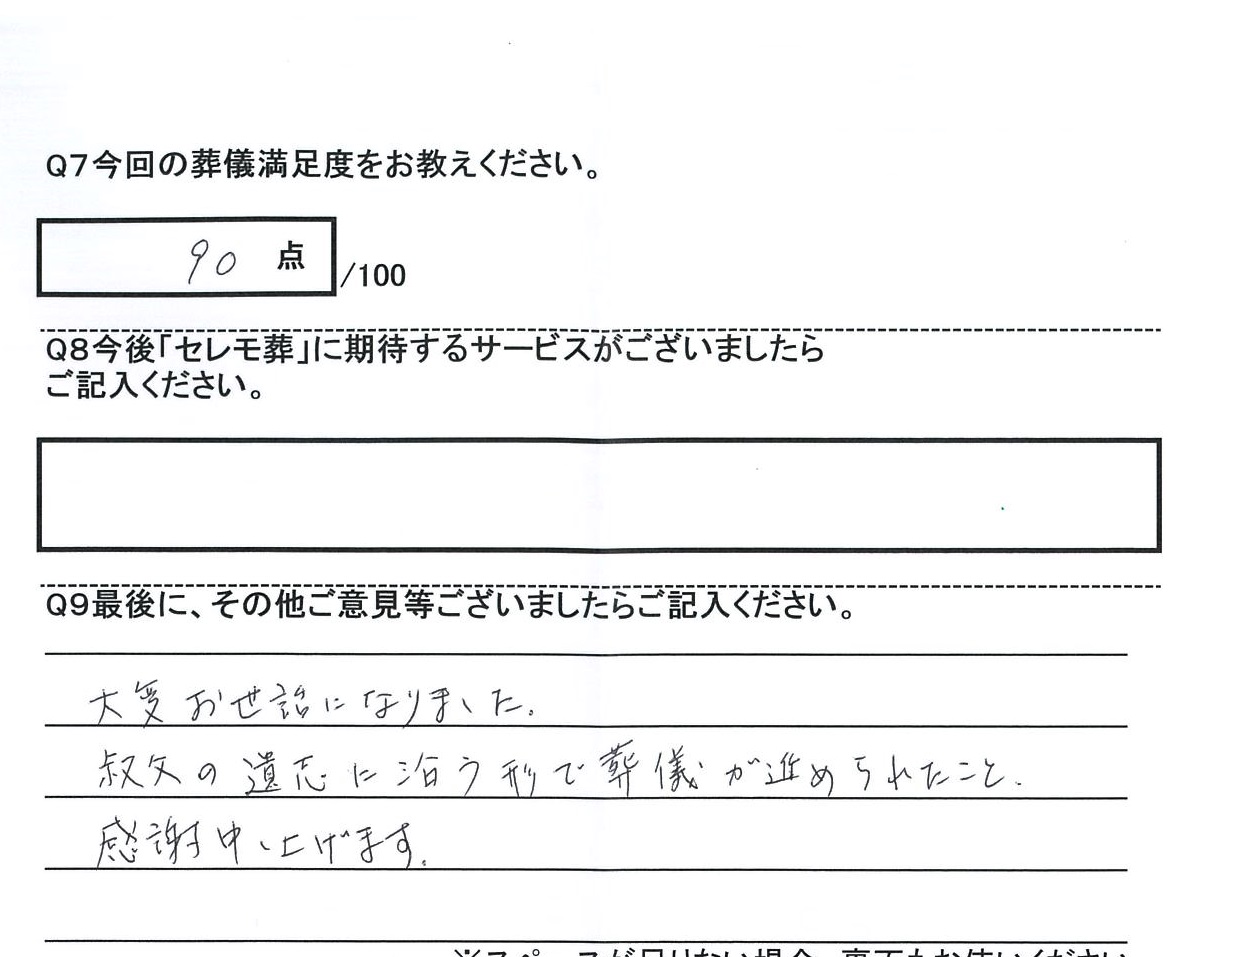 Q7今回の葬儀満足度をお教えください。
90 点 /100
Q8今後「セレモ葬」に期待するサービスがございましたら
ご記入ください。
Q9最後に、その他ご意見等ございましたらご記入ください。
大変お世話になりました。
叔父の遺志に沿う形で葬儀が進められたこと、
感謝申し上げます。
※スペースが足りない場合、裏面もお使いください